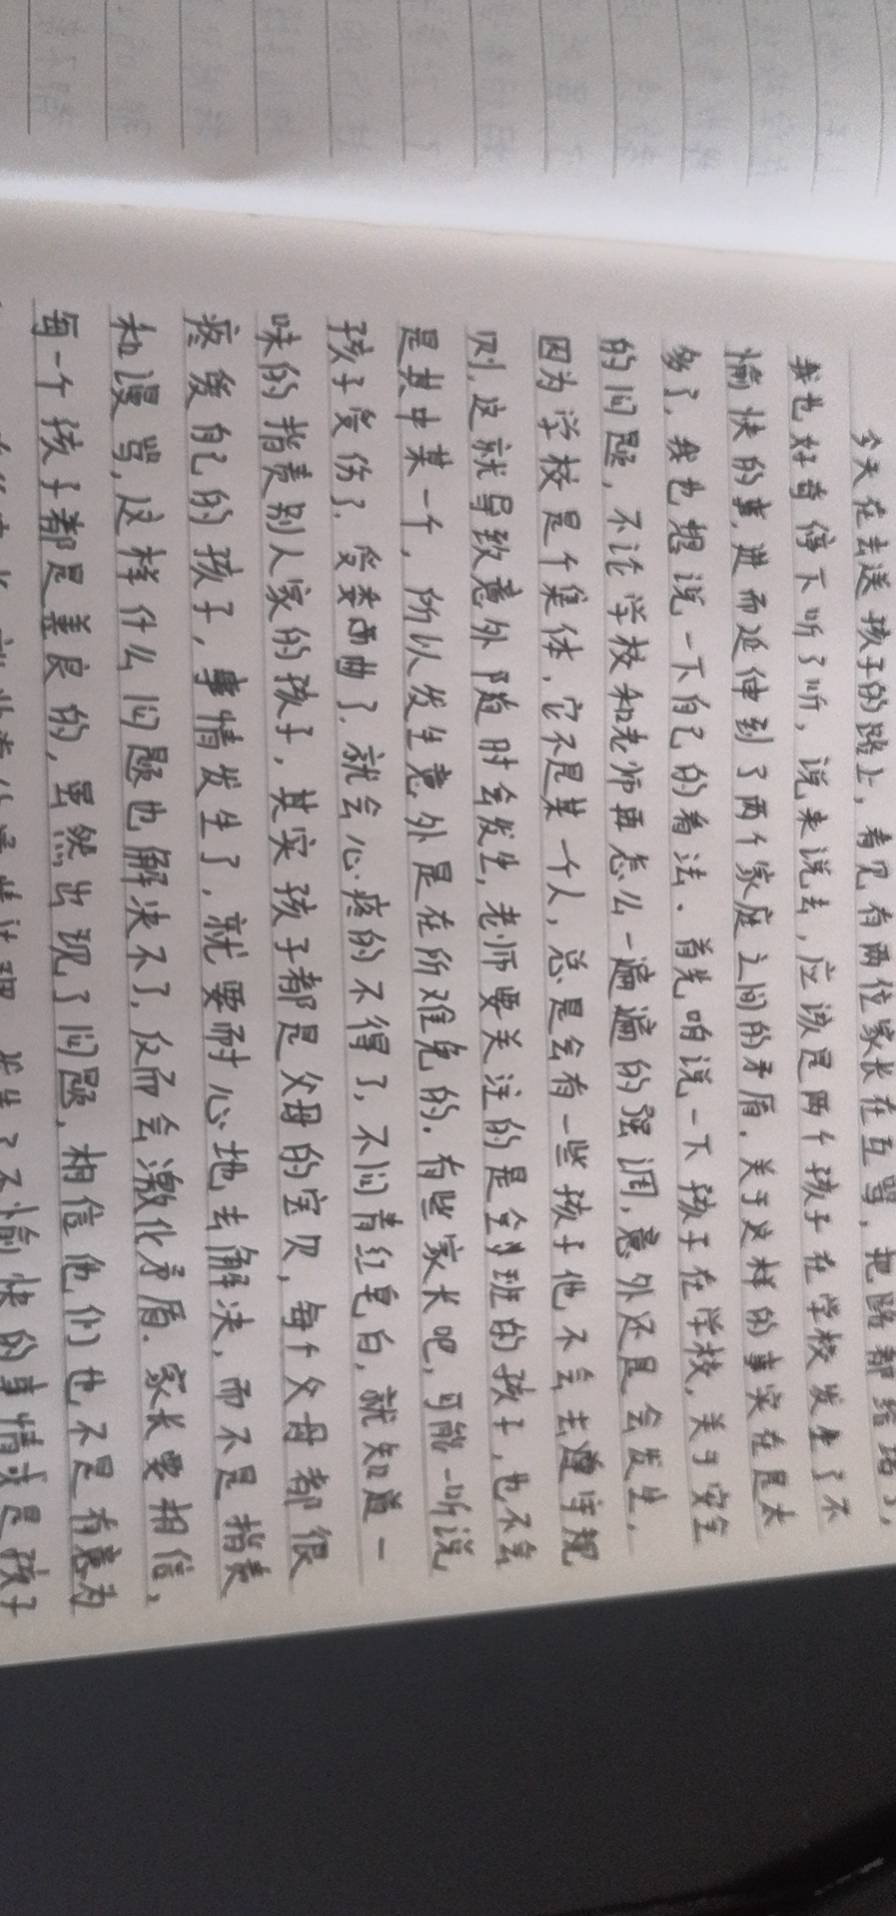 今天在去送孩子的路上，看见有两位家长在互骂，把路都给堵了，
我也好奇停下听了听，说来说去，应该是两个孩子在学校发生了不
愉快的事，进而延伸到了两个家庭之间的矛盾．关于这样的事实在是太
多了，我也想说一下自己的看法．首先咱说一下孩子在学校，关于安全
的问题，不论学校和老师再怎么一遍遍的强调，意外还是会发生，
因为学校是个集体，它不是某一个人，总是会有一些孩子他不会去遵守规
则，这就导致意外随时会发生，老师要关注的是全班的孩子，也不会
是其中某一个，所以发生意外是在所难免的．有些家长吧，可能一听说
孩子受伤了，受委屈了，就会心疼的不得了，不问青红皂白，就知道一
味的指责别人家的孩子，其实孩子都是父母的宝贝，每个父母都很
疼爱自己的孩子，事情发生了，就要耐心地去解决，而不是指责
和谩骂，这样什么问题也解决不了，反而会激化矛盾．家长要相信，
每一个孩子都是善良的，虽然出现了问题，相信他们也不是有意为
发生了不愉快的事情或是孩子